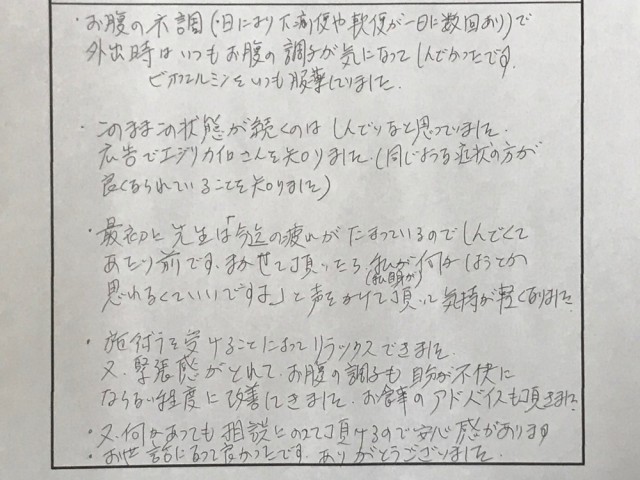 ・お腹の不調(・日により下痢便や軟便が一日に数回あり)で
外出時はいつもお腹の調子が気になってしんどかったです。
ビオフェルミンをいつも服薬してりました。
・このままこの状態が続くのはしんどいなと思っていました。
広告でエジリカイロさんを知りました。(同じような症状の方が
良くなられていることを知りました)
・最初に先生は「今迄の疲れがたまっているのでしんどくて
あたり前です。まかせて頂いたら 私が何かほうとか
(私自身が)
思わなくていいですよ」と声をかけて頂いて気持が軽くなりました
・施術を受けることによってリラックスできました。
又、緊張感がとれて、お腹の調子も自分が不快に
ならない程度に改善してきました。お食事のアドバイスも頂きました
・又、何かあっても相談にのって頂けるので安心感があります
・お世話になって良かったです。ありがとうございました。